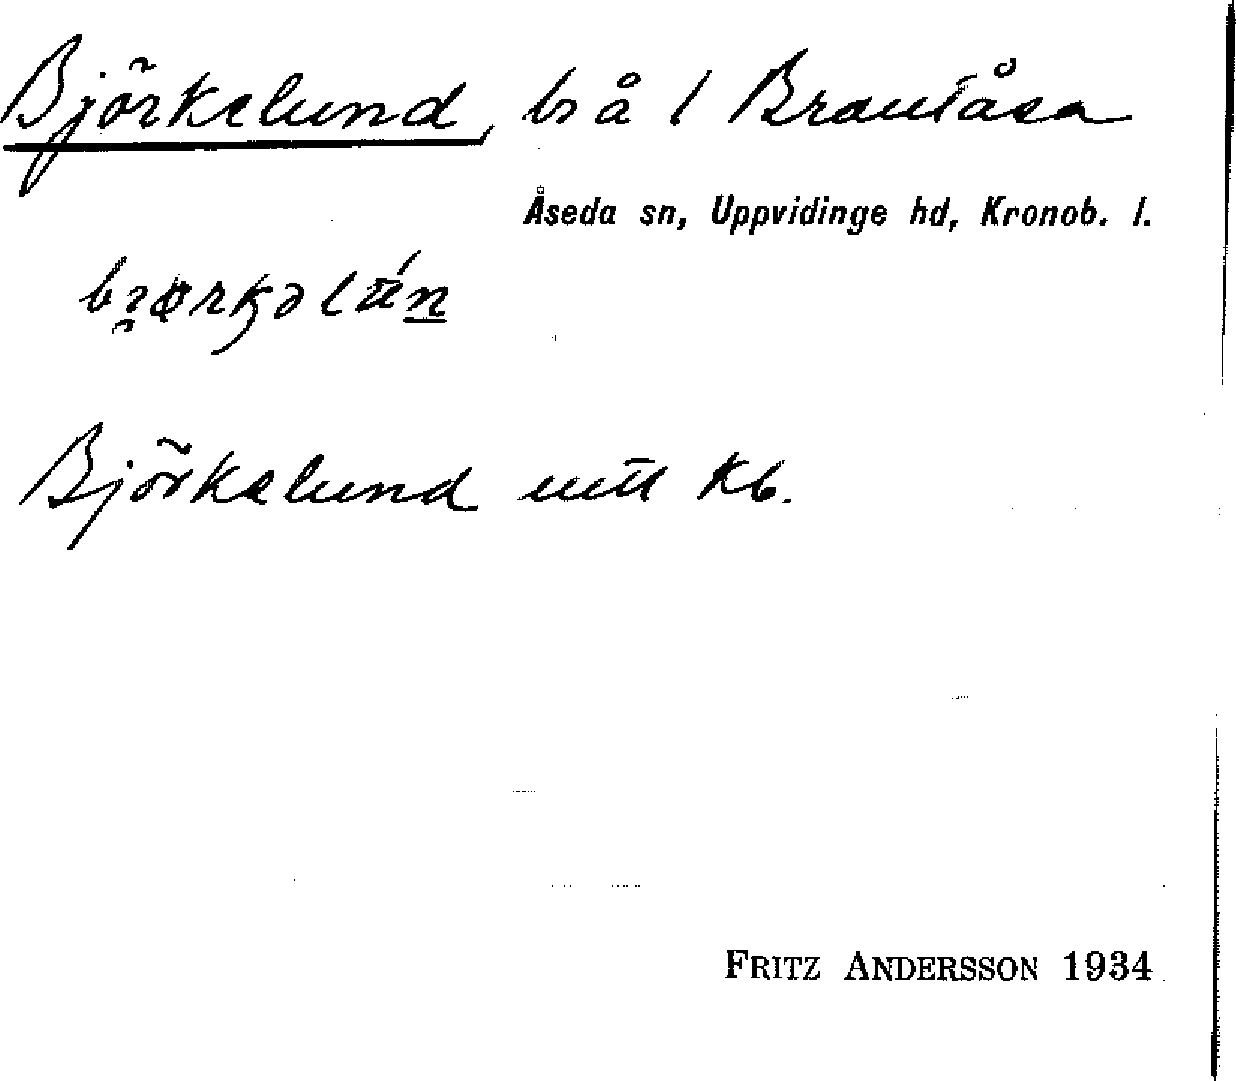 Björkelund, bs å 1 Brantåsa
Åseda sn, Uppvidinge hd, Kronob. l.
Björkelund utt Kb.
FRITZ ANDERSSON 1934